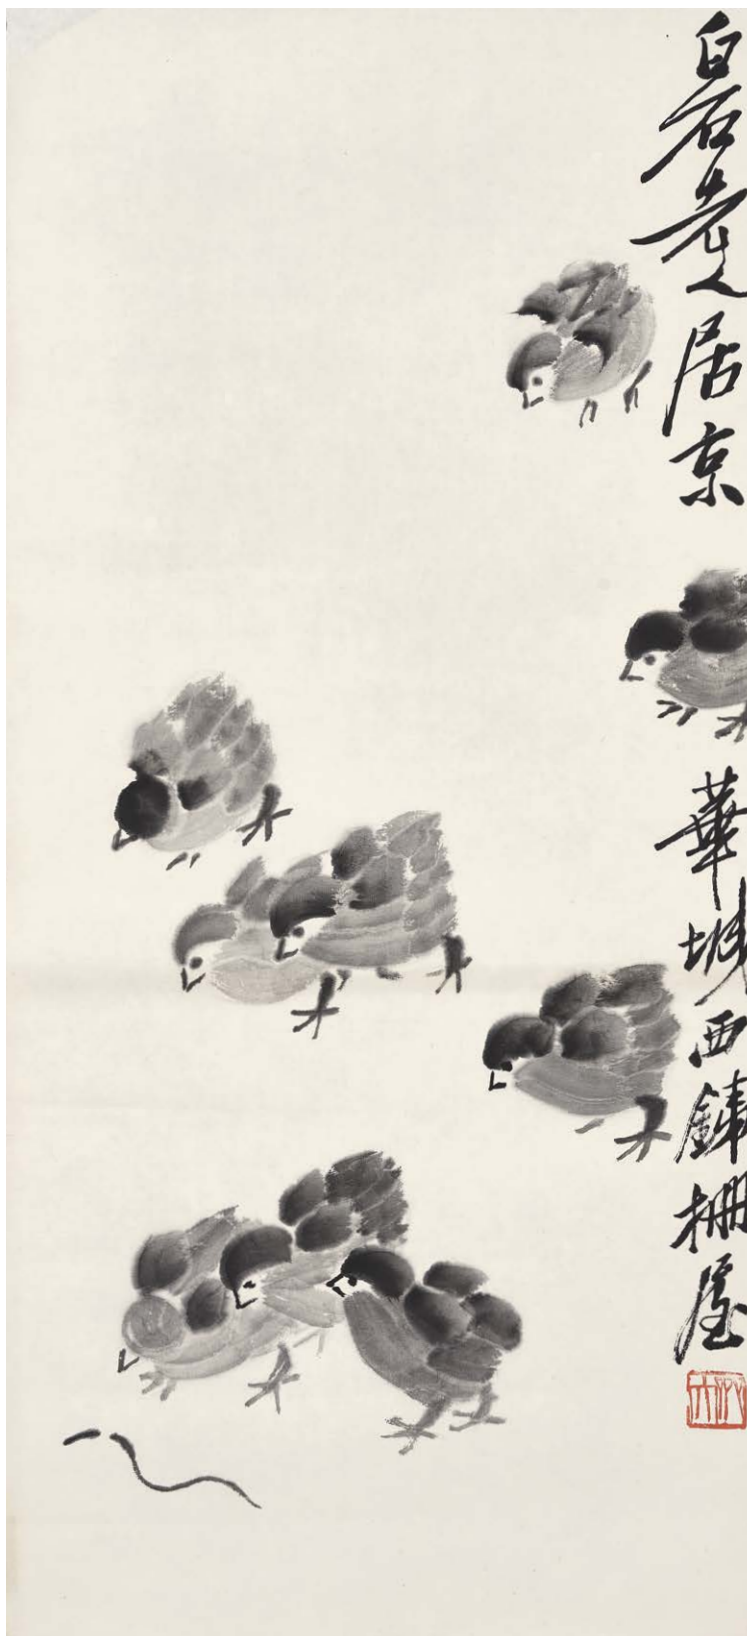 白石老人居京
華城西鐵柵屋